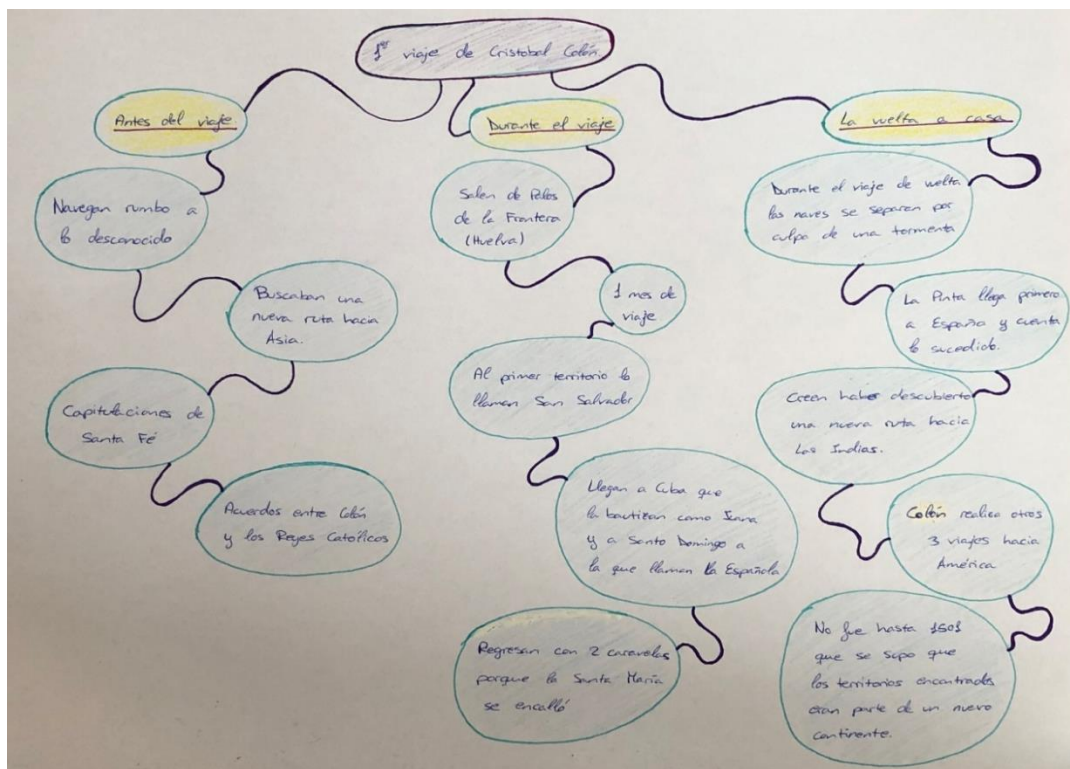 1er viaje de Cristobal Colón
Antes del viaje
Navegan rumbo a
lo desconocido
Buscaban una
nueva ruta hacia
Asia.
Capitulaciones de
Santa Fé
Acuerdos entre Colón
y los Reyes Católicos
Durante el viaje
Salen de Palos
de la Frontera
(Huelva)
1 mes de
viaje
Al primer territorio lo
llaman San Salvador
Llegan a Cuba que
la bautizan como Juana
y a Santo Domingo a
la que llaman la Española
Regresan con 2 caravelas
porque la Santa María
se encalló
La vuelta a casa
Durante el viaje de vuelta
las naves se separan por
culpa de una tormenta
La Pinta llega primero
a España y cuenta
lo sucedido.
Creen haber descubierto
una nueva ruta hacia
Las Indias.
Colón realiza otros
3 viajes hacia
América
No fue hasta 1501
que se supo que
los territorios encontrados
eran parte de un nuevo
continente.